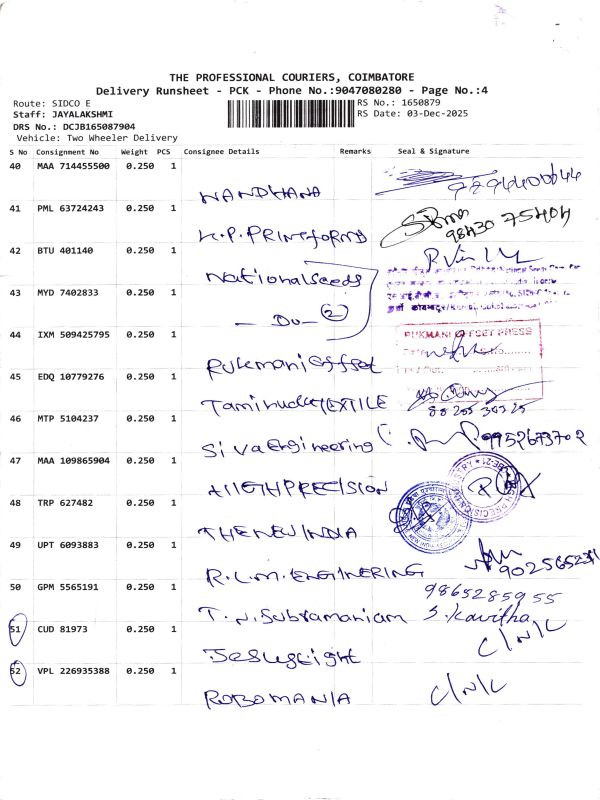 THE PROFESSIONAL COURIERS, COIMBATORE
Delivery Runsheet - PCK - Phone No.:9047080280 - Page No.:4
Route: SIDCO E
RS No.: 1650879
Staff: JAYALAKSHMI
RS Date: 03-Dec-2025
DRS No.: DCJB165087904
Vehicle: Two Wheeler Delivery
S No Consignment No Weight PCS Consignee Details Remarks Seal & Signature
40 MAA 714455500 0.250 1
NANDHANA
41 PML 63724243 0.250 1
K.P. PRINTFORMS 98430 75404
42 BTU 401140 0.250 1
National Seeds
43 MYD 7402833 0.250 1
- Do - 2
44 IXM 509425795 0.250 1
RUKMANI OFFSET PRESS
Rukmani offset
45 EDQ 10779276 0.250 1
Tamilnadu TEXTILE
46 MTP 5104237 0.250 1
Siva Engineering 9952673702
47 MAA 109865904 0.250 1
HIGH PRECISION
48 TRP 627482 0.250 1
THE NEW INDIA
49 UPT 6093883 0.250 1
R.L.M. ENGINERING
50 GPM 5565191 0.250 1
9865285955
T.N. Subramaniam S. Kavitha
51 CUD 81973 0.250 1
C/N/L
52 VPL 226935388 0.250 1
ROBOMANIA C/N/L